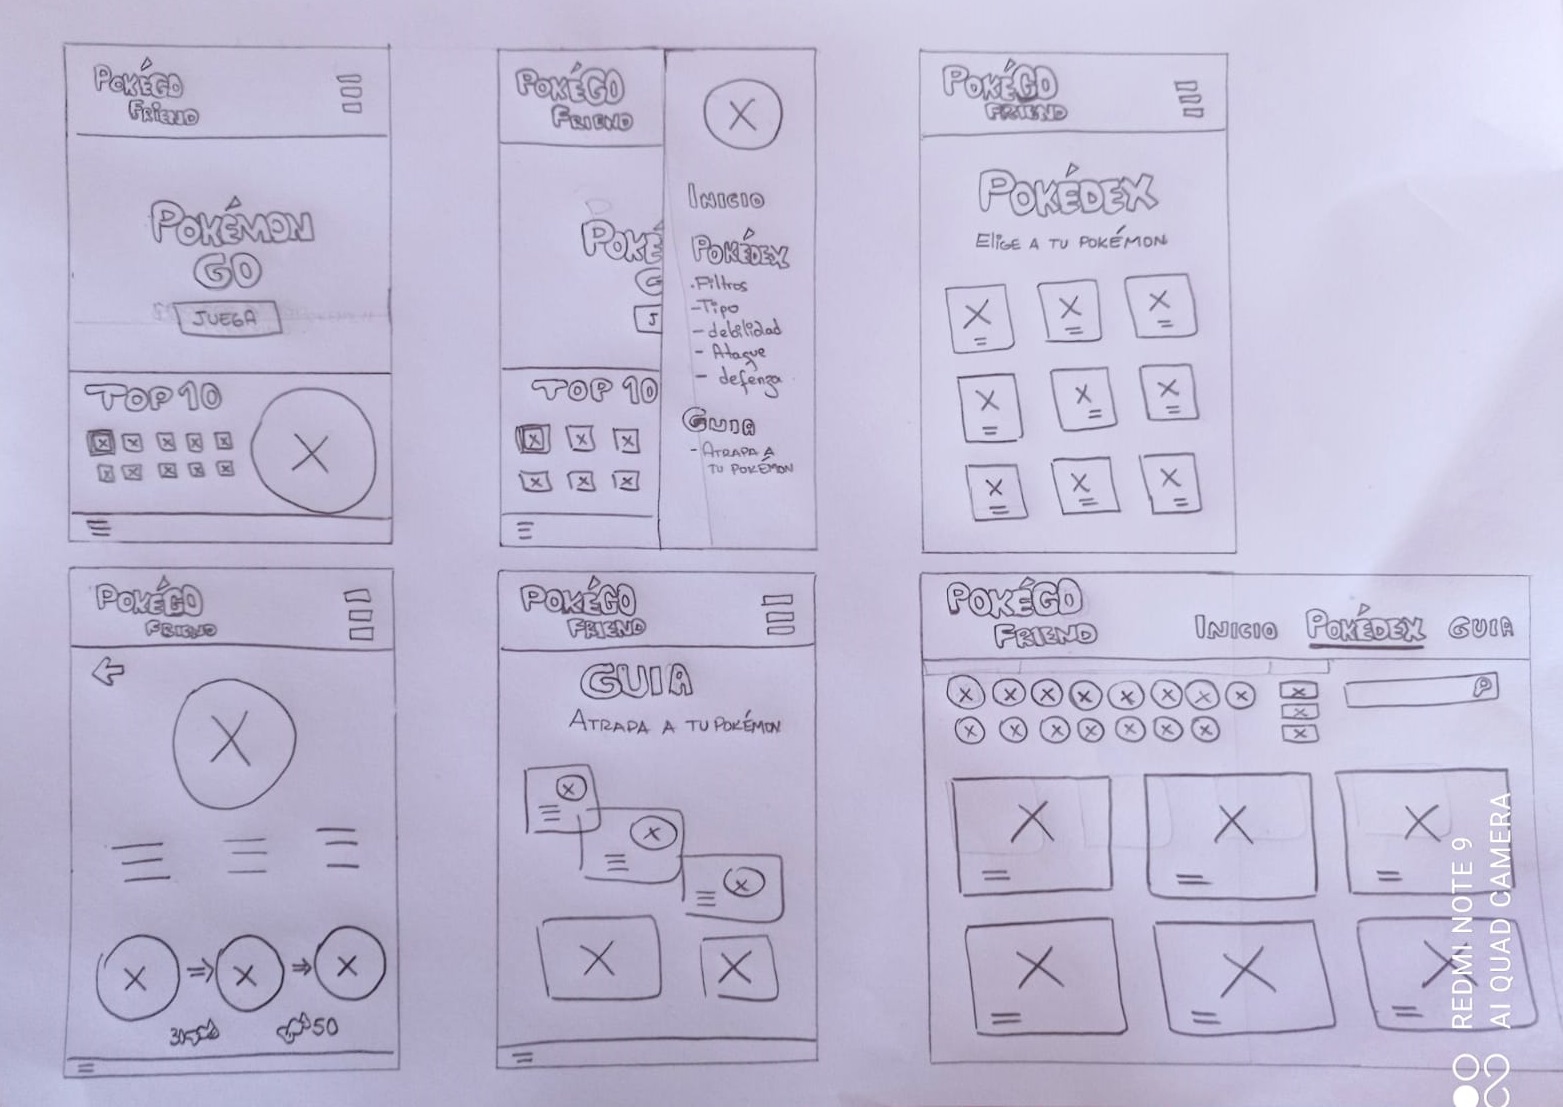 POKÉGO
FRIEND
POKÉMON
GO
JUEGA
TOP 10
POKÉGO
FRIEND
POKÉ
G
J
TOP 10
INICIO
POKÉDEX
.Filtros
-Tipo
- debilidad
- Ataque
- defenza
GUIA
- ATRAPA A
TU POKÉMON
POKÉGO
FRIEND
POKÉDEX
ELIGE A TU POKÉMON
POKÉGO
FRIEND
50
POKÉGO
FRIEND
GUIA
ATRAPA A TU POKÉMON
POKÉGO
FRIEND
INICIO POKÉDEX GUIA
REDMI NOTE 9
AI QUAD CAMERA